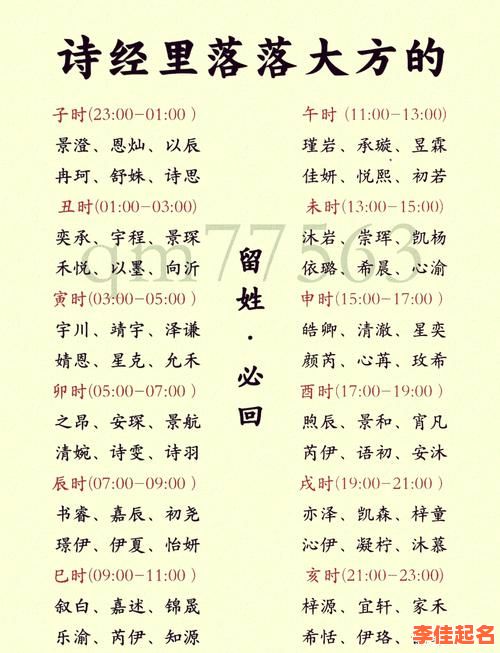 诗经里落落大方的
子时(23:00-01:00)
景澄、恩灿、以辰
冉珂、舒姝、诗思
丑时(01:00-03:00)
奕承、宇程、景琛
禾悦、以墨、向沂
寅时(03:00-05:00)
宇川、靖宇、泽谦
婧恩、星克、允禾
卯时(05:00-07:00)
之昂、安琛、景航
清婉、诗雯、诗羽
辰时(07:00-09:00)
书睿、嘉辰、初尧
璟伊、伊夏、怡妍
巳时(09:00-11:00)
叙白、嘉述、锦晟
乐渝、芮伊、知源
qm77563
留姓·必回
午时(11:00-13:00)
瑾岩、承璇、昱霖
佳妍、悦熙、初若
未时(13:00-15:00)
沐岩、崇珲、凯杨
依璐、希晨、心渝
申时(15:00-17:00)
皓卿、清澈、星奕
颜芮、心苒、玫希
酉时(17:00-19:00)
煦辰、景和、宵凡
芮伊、语初、安沐
戌时(19:00-21:00)
亦泽、凯森、梓童
沁伊、凝柠、沐慕
亥时(21:00-23:00)
梓源、宜轩、家禾
希恬、伊珞、
李佳起名